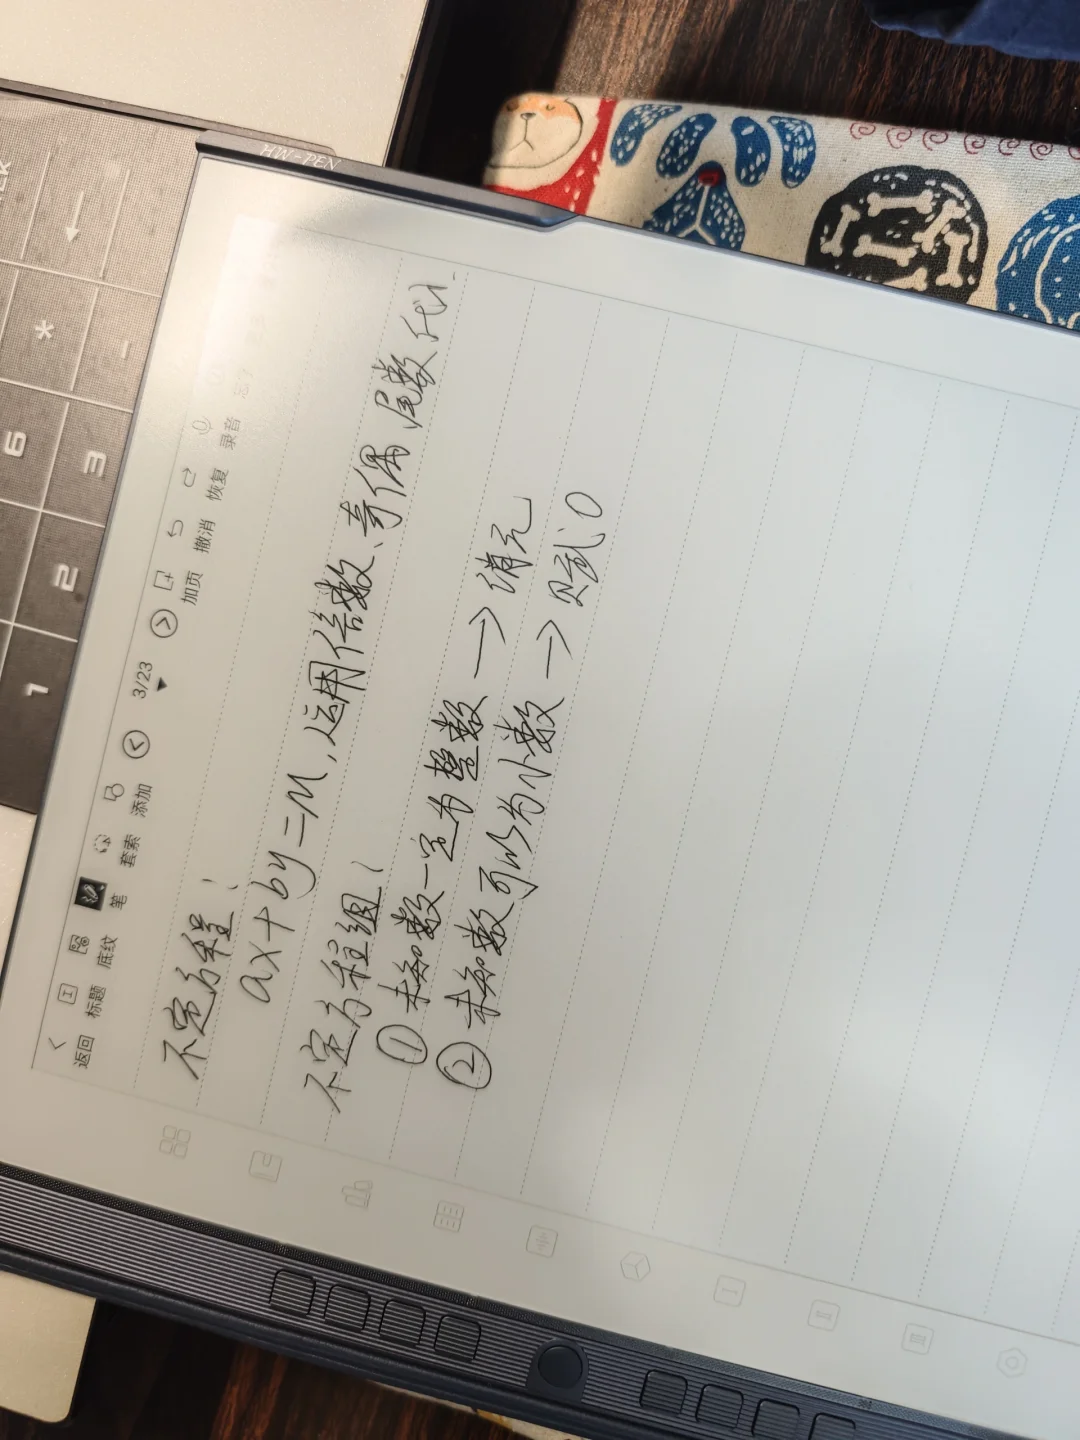 HW-PEN
返回 标题 底纹 笔 套索 添加 3/23 加页 撤消 恢复 录音
不定方程:
ax+by=M,运用倍数、奇偶、尾数、代入.
不定方程组:
① 未知数一定为整数 → 消元
② 未知数可以为小数 → 赋0
1 2 3
6 *